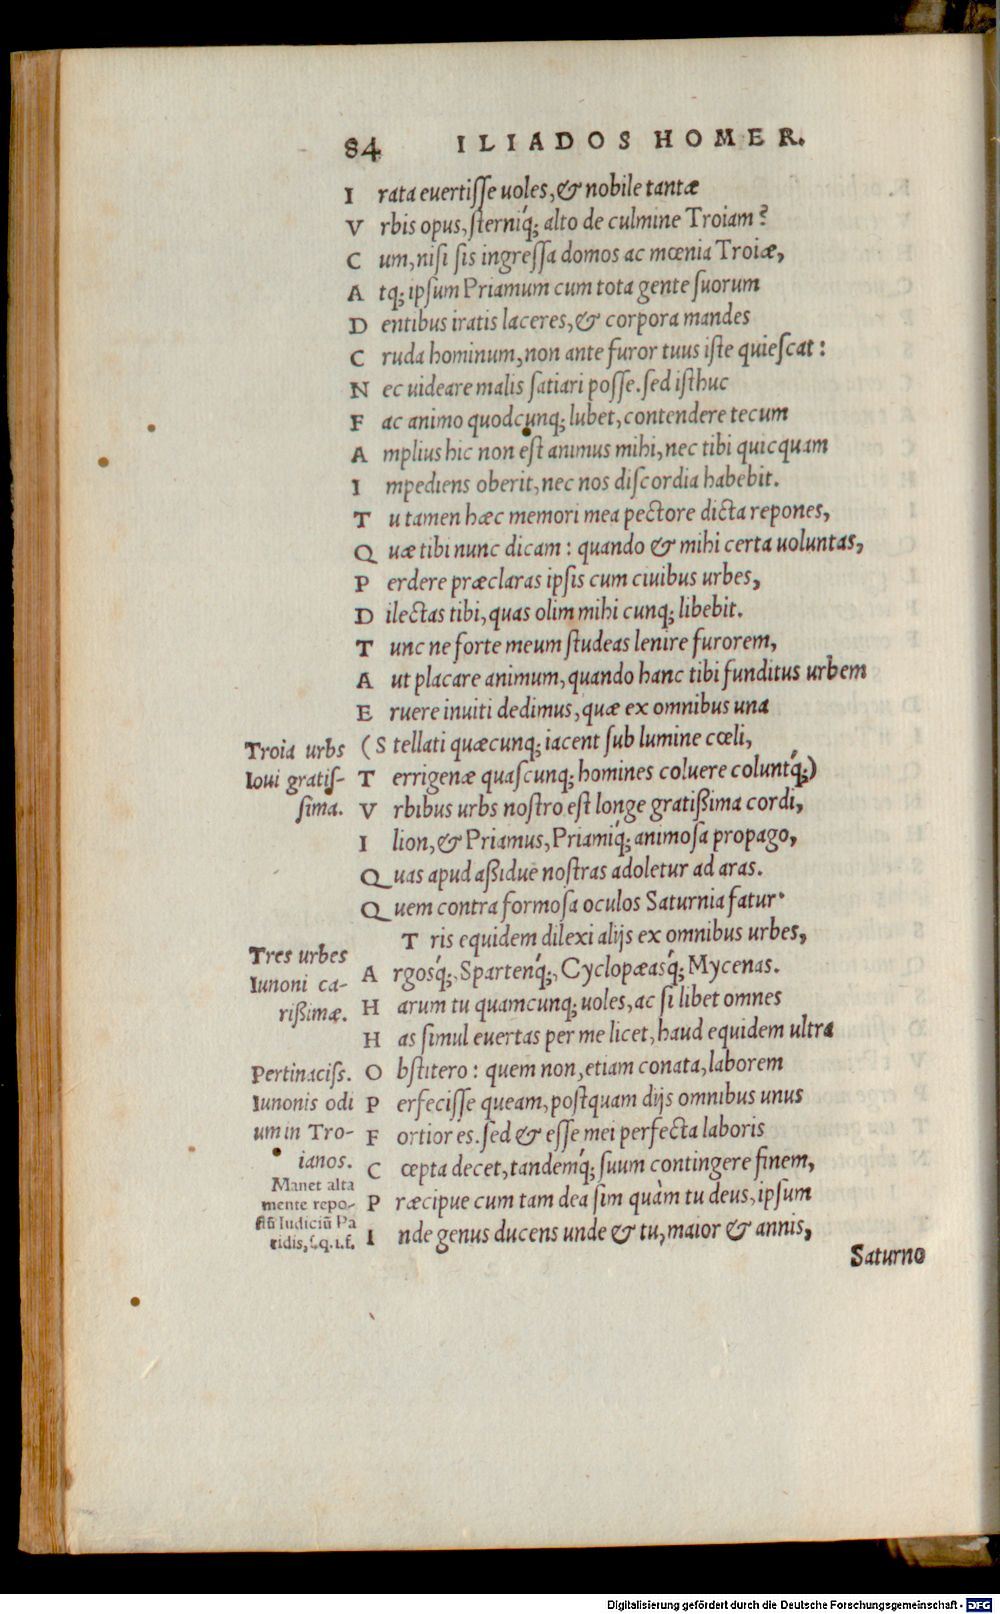 84 ILIADOS HOMER.
Irata euertisse uoles, & nobile tantæ
Vrbis opus, sterniq́; alto de culmine Troiam?
Cum, nisi sis ingressa domos ac mœnia Troiæ,
Atq; ipsum Priamum cum tota gente suorum
Dentibus iratis laceres, & corpora mandes
Cruda hominum, non ante furor tuus iste quiescat:
Nec uideare malis satiari posse. sed isthuc
Fac animo quodcunq; lubet, contendere tecum
Amplius hic non est animus mihi, nec tibi quicquam
Impediens oberit, nec nos discordia habebit.
Tu tamen hæc memori mea pectore dicta repones,
Quæ tibi nunc dicam: quando & mihi certa uoluntas,
Perdere præclaras ipsis cum ciuibus urbes,
Dilectas tibi, quas olim mihi cunq; libebit.
Tunc ne forte meum studeas lenire furorem,
Aut placare animum, quando hanc tibi funditus urbem
Eruere inuiti dedimus, quæ ex omnibus una
Troia urbs
Ioui gratis-
sima.
(Stellati quæcunq; iacent sub lumine cœli,
Terrigenæ quascunq; homines coluere coluntq́;)
Vrbibus urbs nostro est longe gratißima cordi,
Ilion, & Priamus, Priamiq́; animosa propago,
Quas apud aßidue nostras adoletur ad aras.
Quem contra formosa oculos Saturnia fatur.
Tris equidem dilexi alijs ex omnibus urbes,
Tres urbes
Iunoni ca-
rißimæ.
Argosq́;, Spartenq́;, Cyclopæasq́; Mycenas.
Harum tu quamcunq; uoles, ac si libet omnes
Has simul euertas per me licet, haud equidem ultra
Pertinaciss.
Iunonis odi
um in Tro-
ianos.
Obstitero: quem non, etiam conata, laborem
Perfecisse queam, postquam dijs omnibus unus
Fortior es. sed & esse mei perfecta laboris
Cœpta decet, tandemq́; suum contingere finem,
Manet alta
mente repo-
stū Iudiciū Pa
ridis, s.q.i.f.
Præcipue cum tam dea sim quàm tu deus, ipsum
Inde genus ducens unde & tu, maior & annis,
Saturno
Digitalisierung gefördert durch die Deutsche Forschungsgemeinschaft - DFG